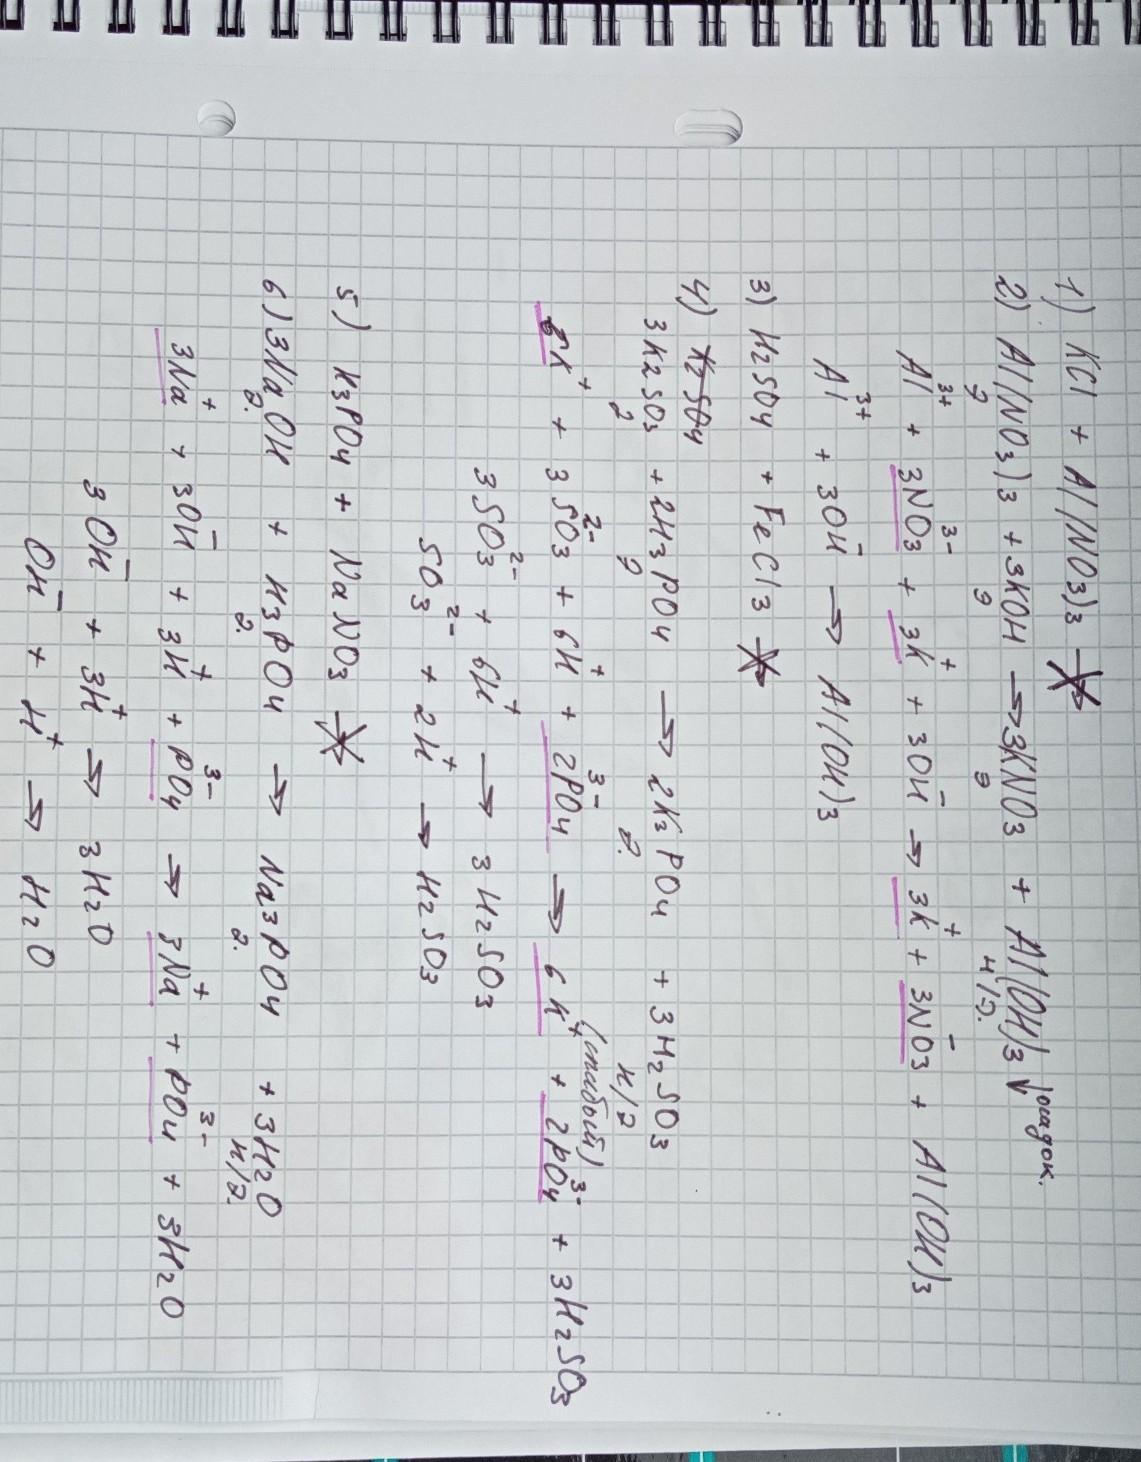 1) KCl + Al(NO3)3 ↛
2) Al(NO3)3 + 3KOH → 3KNO3 + Al(OH)3 ↓осадок.
р р р н/р.
Al³⁺ + 3NO3³⁻ + 3K⁺ + 3OH⁻ → 3K⁺ + 3NO3⁻ + Al(OH)3
Al³⁺ + 3OH⁻ → Al(OH)3
3) H2SO4 + FeCl3 ↛
4) K2SO4
3K2SO3 + 2H3PO4 → 2K3PO4 + 3H2SO3
р р р. н/р
(слабый)
6K⁺ + 3SO3²⁻ + 6H⁺ + 2PO4³⁻ → 6K⁺ + 2PO4³⁻ + 3H2SO3
3SO3²⁻ + 6H⁺ → 3H2SO3
SO3²⁻ + 2H⁺ → H2SO3
5) H3PO4 + NaNO3 ↛
6) 3NaOH + H3PO4 → Na3PO4 + 3H2O
р. р. р. н/р.
3Na⁺ + 3OH⁻ + 3H⁺ + PO4³⁻ → 3Na⁺ + PO4³⁻ + 3H2O
3OH⁻ + 3H⁺ → 3H2O
OH⁻ + H⁺ → H2O